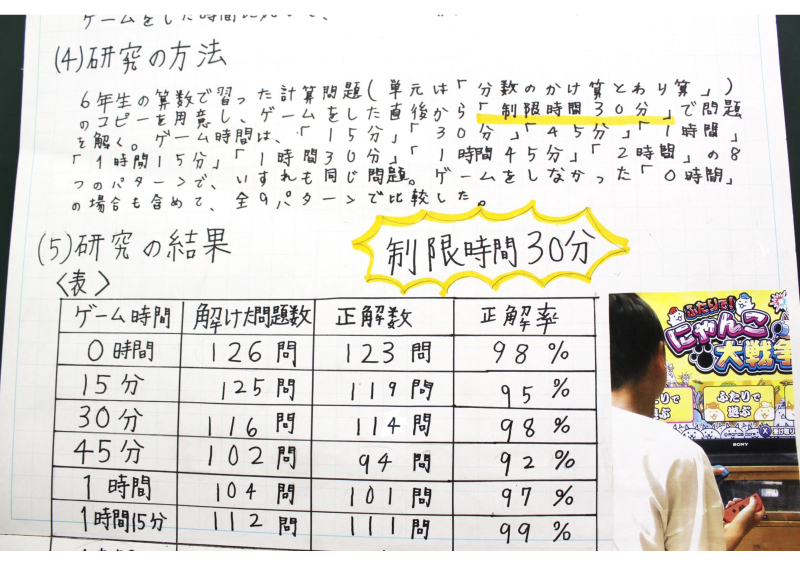 ゲームをした時間に
(4)研究の方法
6年生の算数で習った計算問題(単元は「分数のかけ算とわり算」)
のコピーを用意し、ゲームをした直後から「制限時間30分」で問題
を解く。ゲーム時間は、「15分」「30分」「45分」「1時間」
「1時間15分」「1時間30分」「1時間45分」「2時間」の8
つのパターンで、いずれも同じ問題。ゲームをしなかった「0時間」
の場合も含めて、全9パターンで比較した。
(5)研究の結果
制限時間30分
〈表〉
ゲーム時間 解けた問題数 正解数 正解率
0時間 126問 123問 98%
15分 125問 119問 95%
30分 116問 114問 98%
45分 102問 94問 92%
1時間 104問 101問 97%
1時間15分 112問 111問 99%
ふたりで!
にゃんこ
大戦争
ふたりで
遊ぶ
SONY